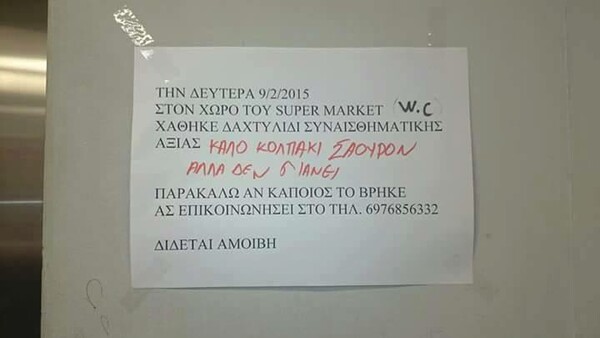 ΤΗΝ ΔΕΥΤΕΡΑ 9/2/2015
ΣΤΟΝ ΧΩΡΟ ΤΟΥ SUPER MARKET W.C
ΧΑΘΗΚΕ ΔΑΧΤΥΛΙΔΙ ΣΥΝΑΙΣΘΗΜΑΤΙΚΗΣ
ΑΞΙΑΣ ΚΑΛΟ ΚΟΛΠΑΚΙ ΣΑΟΥΡΟΝ
ΑΛΛΑ ΔΕΝ ΠΙΑΝΕΙ
ΠΑΡΑΚΑΛΩ ΑΝ ΚΑΠΟΙΟΣ ΤΟ ΒΡΗΚΕ
ΑΣ ΕΠΙΚΟΙΝΩΝΗΣΕΙ ΣΤΟ ΤΗΛ. 6976856332
ΔΙΔΕΤΑΙ ΑΜΟΙΒΗ